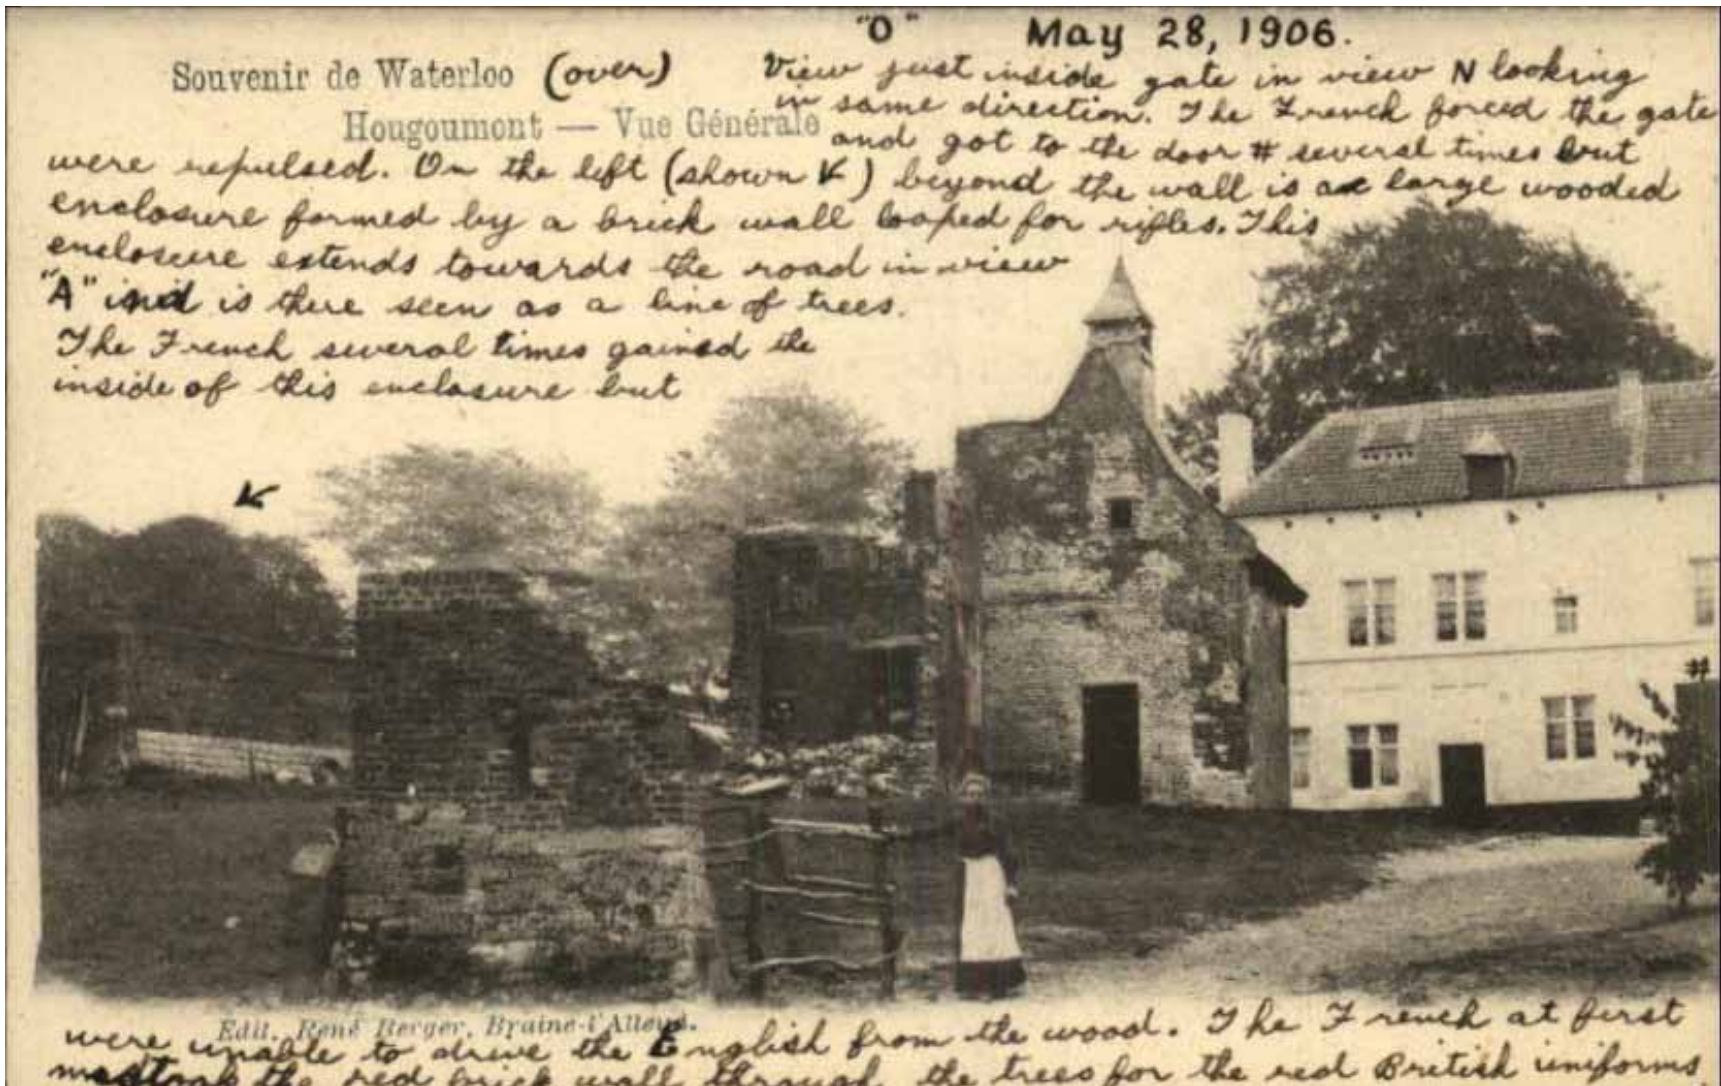 "O" May 28, 1906.
Souvenir de Waterloo (over)
Hougoumont — Vue Générale
View just inside gate in view N looking
in same direction. The French forced the gate
and got to the door # several times but
were repulsed. On the left (shown ↙) beyond the wall is a large wooded
enclosure formed by a brick wall looped for rifles. This
enclosure extends towards the road in view
"A" and is there seen as a line of trees.
The French several times gained the
inside of this enclosure but
↙
#
Edit. René Berger, Braine-l'Alleud.
were unable to drive the English from the wood. The French at first
mistook the red brick wall through the trees for the red British uniforms